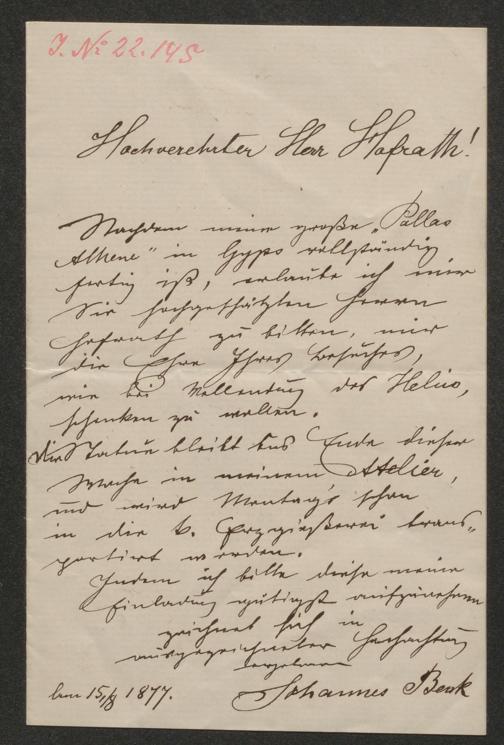 J. № 22.145
Hochverehrter Herr Hofrath!
Nachdem meine große „Pallas
Athene“ in Gyps vollständig
fertig ist, erlaube ich mir
Sie hochgeschätzten Herrn
Hofrath zu bitten, mir
die Ehre Ihres Besuches,
wie bei Vollendung des Helios,
schenken zu wollen.
Die Statue bleibt bis Ende dieser
Woche in meinem Atelier,
und wird Montags schon
in die k. Erzgießerei trans-
portirt werden.
Indem ich bitte diese meine
Einladung gütigst aufzunehmen
zeichnet sich in
ausgezeichneter Hochachtung
ergebener
Johannes Benk
15/ 1877.